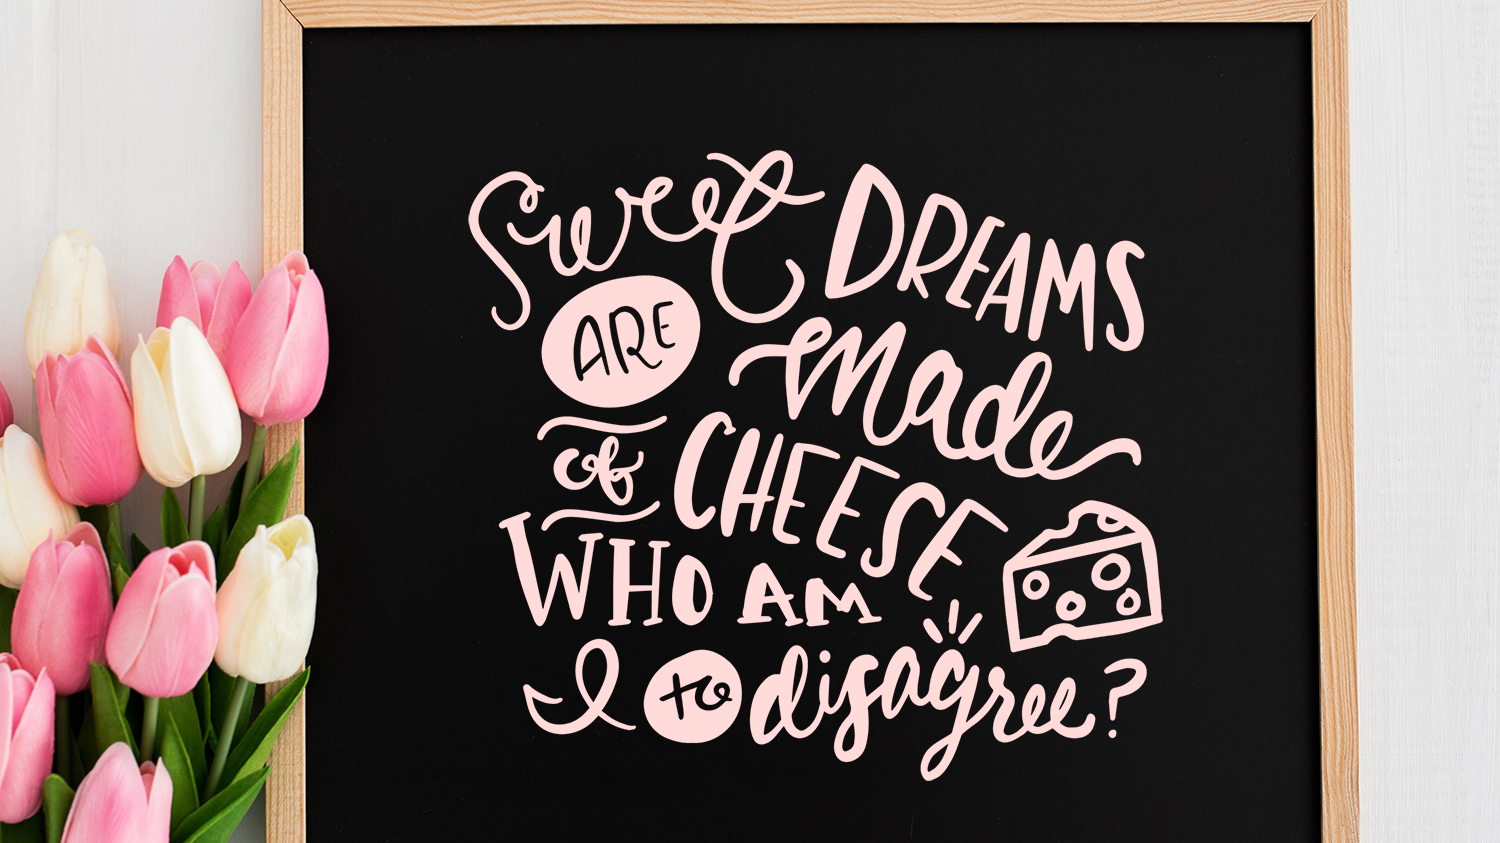 Sweet DREAMS
ARE made
of CHEESE
WHO AM
I to disagree?